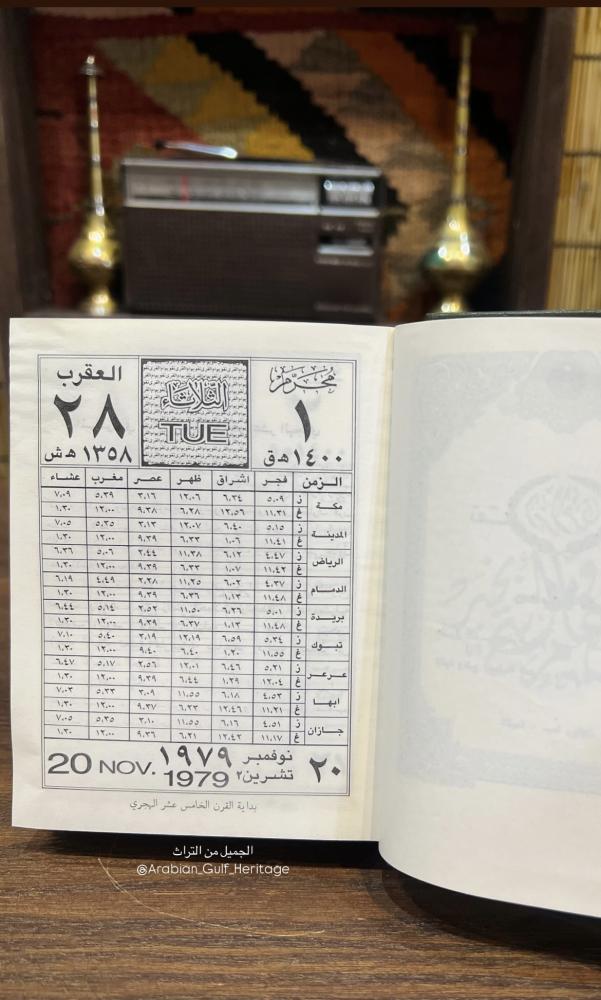 العقرب
٢٨
١٣٥٨ هـ ش
الثلاثاء
TUE
محرم
١
١٤٠٠ هـ ق
الزمن فجر اشراق ظهر عصر مغرب عشاء
مكة ز ٥،٠٩ ٦،٣٤ ١٢،٠٦ ٣،١٦ ٥،٣٩ ٧،٠٩
غ ١١،٣١ ١٢،٥٦ ٦،٢٨ ٩،٣٨ ١٢،٠٠ ١،٣٠
المدينة ز ٥،١٥ ٦،٤٠ ١٢،٠٧ ٣،١٣ ٥،٣٥ ٧،٠٥
غ ١١،٤١ ١،٠٦ ٦،٣٣ ٩،٣٩ ١٢،٠٠ ١،٣٠
الرياض ز ٤،٤٧ ٦،١٢ ١١،٣٨ ٢،٤٤ ٥،٠٦ ٦،٣٦
غ ١١،٤٢ ١،٠٧ ٦،٣٣ ٩،٣٩ ١٢،٠٠ ١،٣٠
الدمام ز ٤،٣٧ ٦،٠٢ ١١،٢٥ ٢،٢٨ ٤،٤٩ ٦،١٩
غ ١١،٤٨ ١،١٣ ٦،٣٦ ٩،٣٩ ١٢،٠٠ ١،٣٠
بريدة ز ٥،٠١ ٦،٢٦ ١١،٥٠ ٢،٥٢ ٥،١٤ ٦،٤٤
غ ١١،٤٨ ١،١٣ ٦،٣٧ ٩،٣٩ ١٢،٠٠ ١،٣٠
تبوك ز ٥،٣٤ ٦،٥٩ ١٢،١٩ ٣،١٩ ٥،٤٠ ٧،١٠
غ ١١،٥٥ ١،٢٠ ٦،٤٠ ٩،٤٠ ١٢،٠٠ ١،٣٠
عرعر ز ٥،٢١ ٦،٤٦ ١٢،٠١ ٢،٥٦ ٥،١٧ ٦،٤٧
غ ١٢،٠٤ ١،٢٩ ٦،٤٤ ٩،٣٩ ١٢،٠٠ ١،٣٠
ابها ز ٤،٥٣ ٦،١٨ ١١،٥٥ ٣،٠٩ ٥،٣٣ ٧،٠٣
غ ١١،٢١ ١٢،٤٦ ٦،٢٣ ٩،٣٧ ١٢،٠٠ ١،٣٠
جازان ز ٤،٥١ ٦،١٦ ١١،٥٥ ٣،١٠ ٥،٣٥ ٧،٠٥
غ ١١،١٧ ١٢،٤٢ ٦،٢١ ٩،٣٦ ١٢،٠٠ ١،٣٠
٢٠ نوفمبر ١٩٧٩
تشرين٢ 1979
20 NOV.
بداية القرن الخامس عشر الهجري
الجميل من التراث
@Arabian_Gulf_Heritage